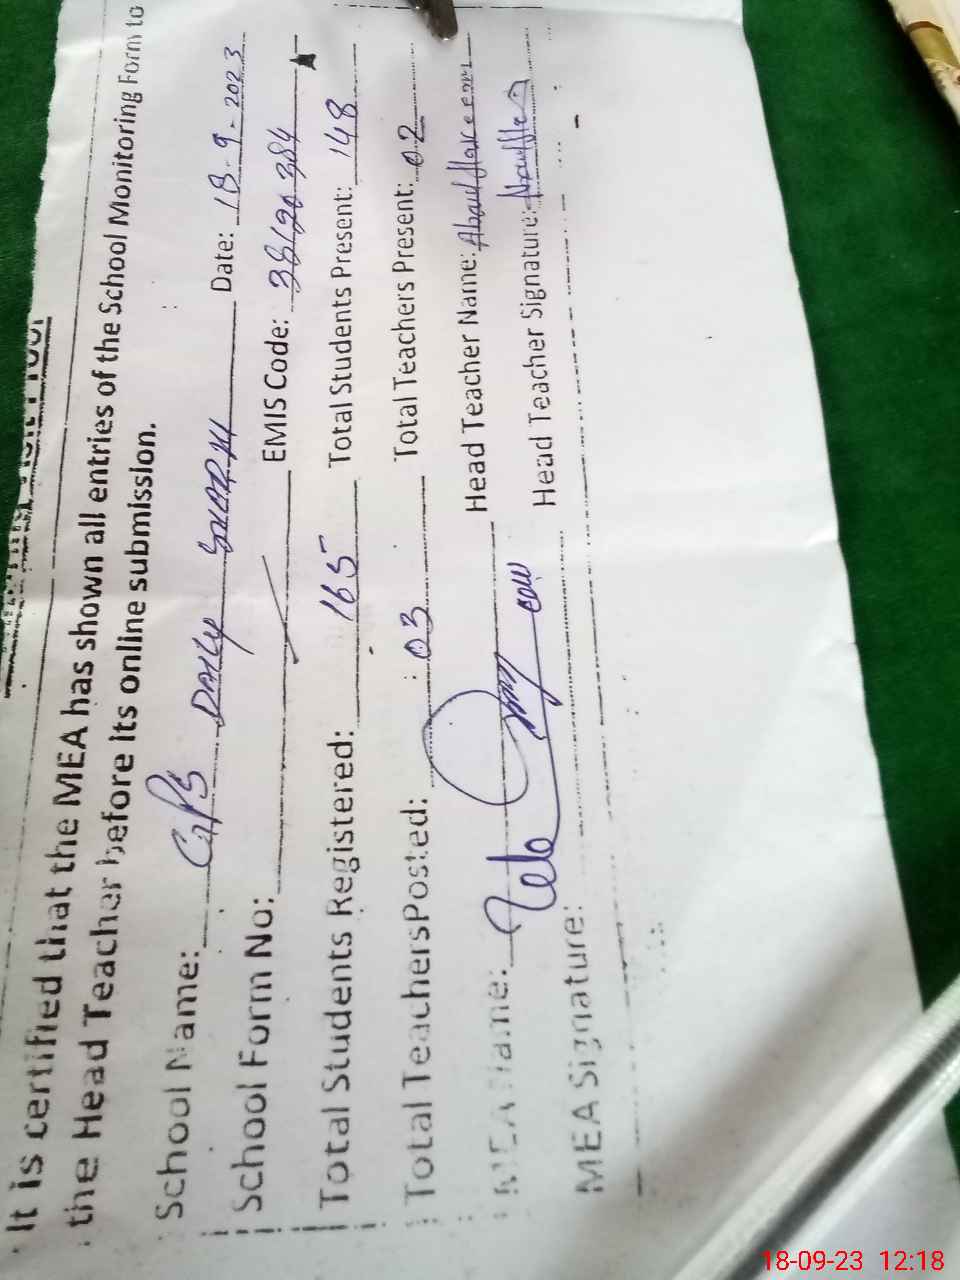 It is certified that the MEA has shown all entries of the School Monitoring Form to
the Head Teacher before its online submission.
School Name: GPS DAILY Date: 18-9-2023
School Form No: EMIS Code:
Total Students Registered: 165 Total Students Present: 148
Total TeachersPosted: 03 Total Teachers Present: 02
MEA Name: Head Teacher Name:
MEA Signature: Head Teacher Signature:
18-09-23 12:18